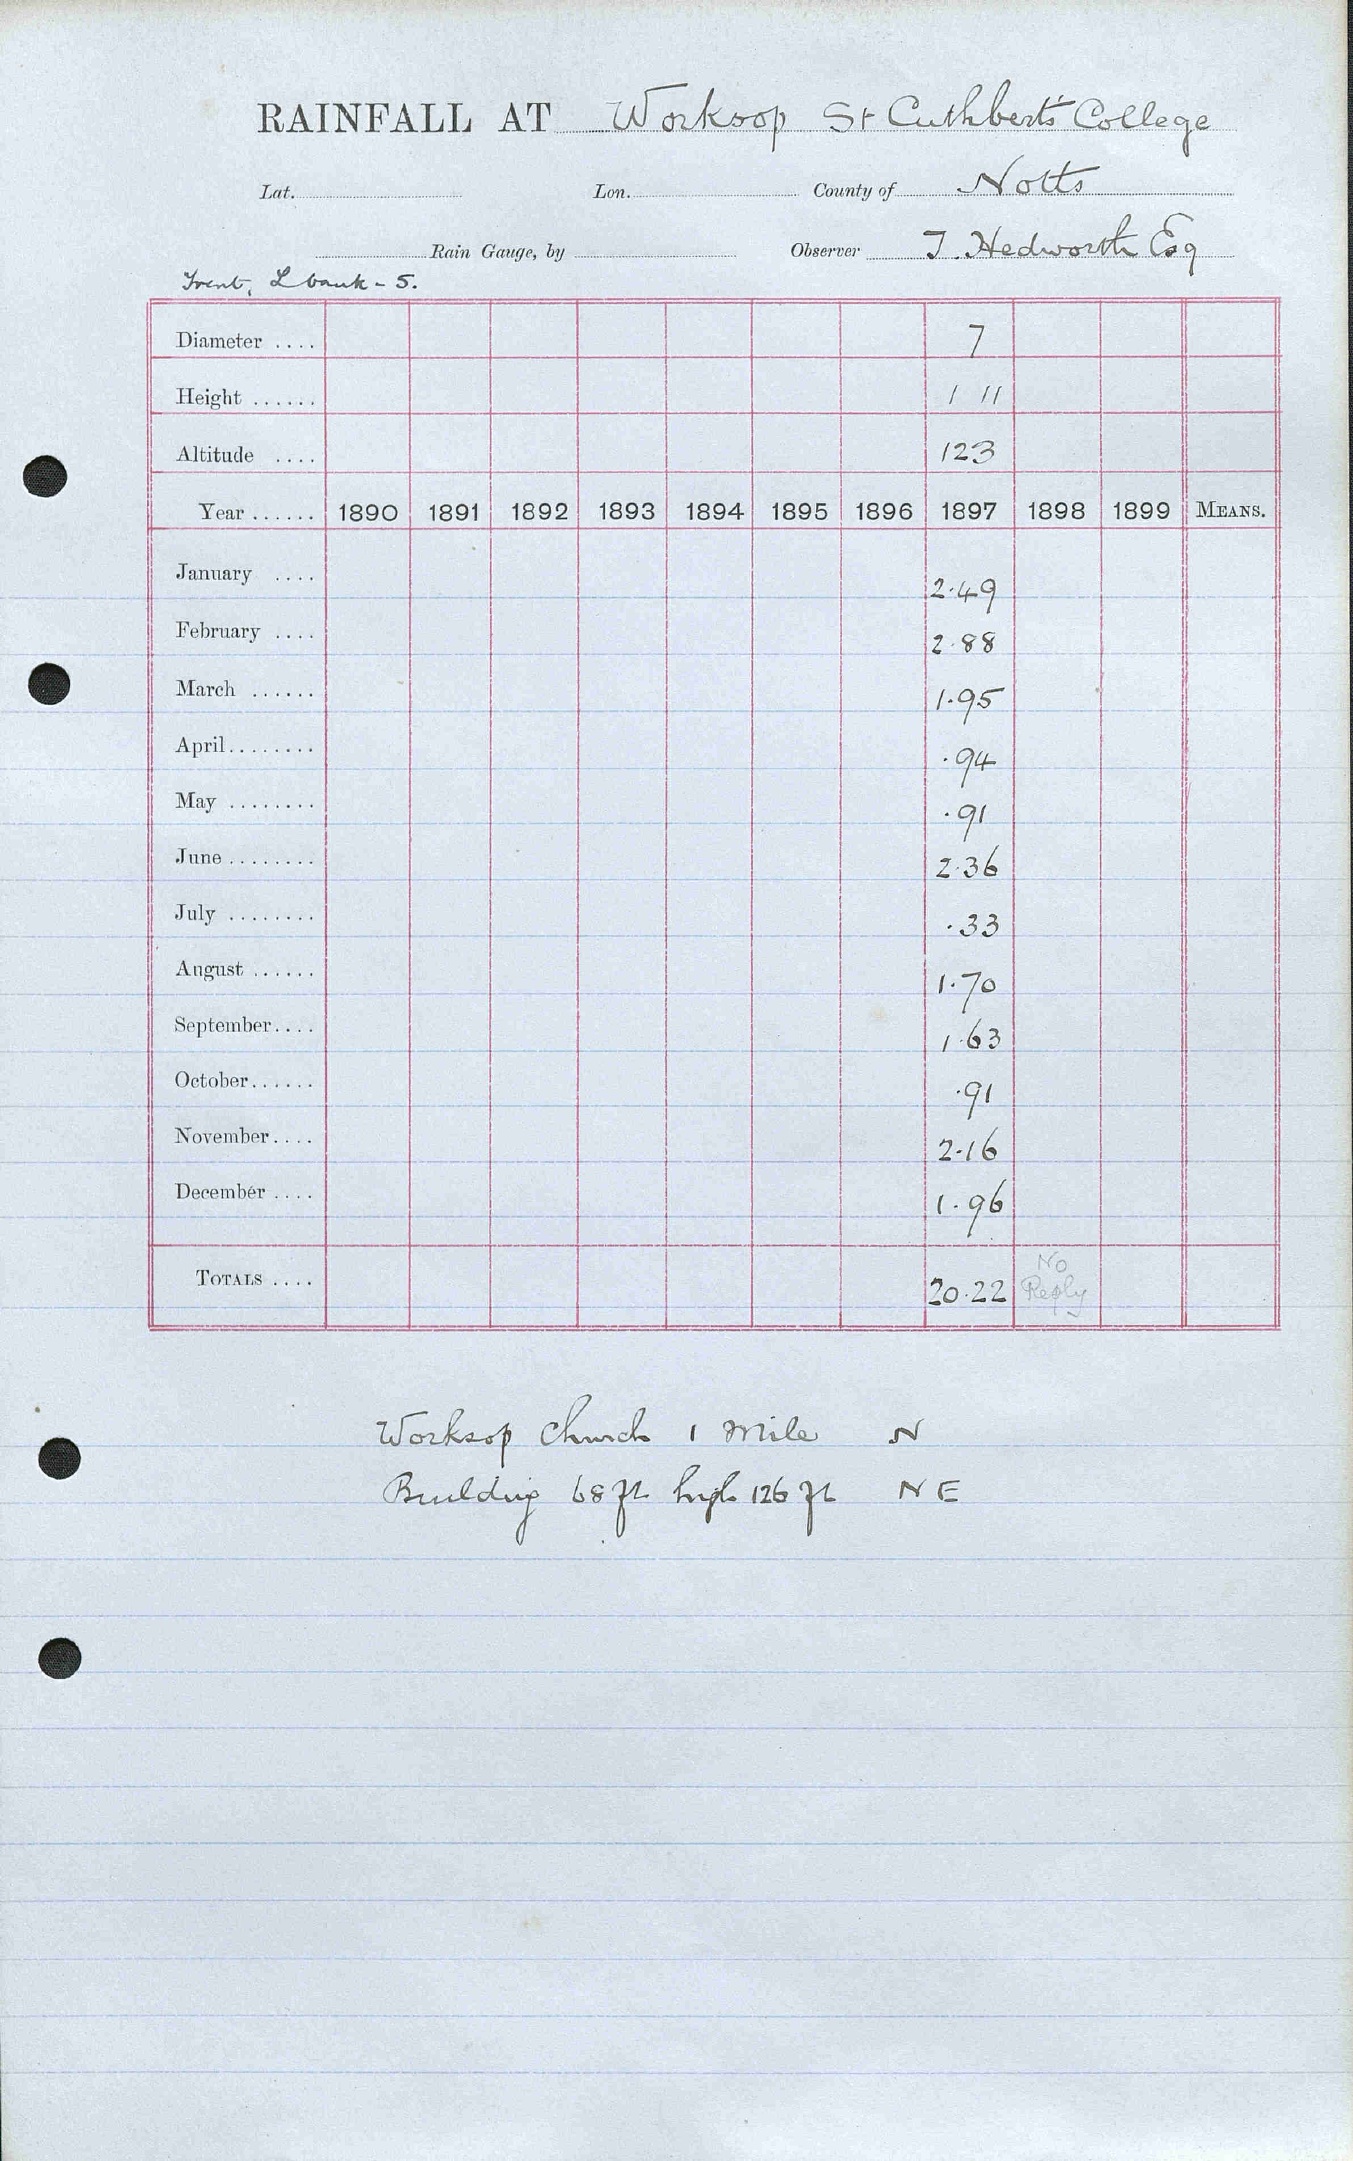 RAINFALL AT Worksop St Cuthbert's College
Lat. Lon. County of Notts
Rain Gauge, by Observer T. Hedworth Esq
Trent, L bank - 5.
Diameter .... 7
Height ...... 1 11
Altitude .... 123
Year ...... 1890 1891 1892 1893 1894 1895 1896 1897 1898 1899 MEANS.
January .... 2.49
February .... 2.88
March ...... 1.95
April........ .94
May ........ .91
June ........ 2.36
July ........ .33
August ...... 1.70
September.... 1.63
October...... .91
November.... 2.16
December .... 1.96
TOTALS .... 20.22 No Reply
Worksop Church 1 Mile N
Building 68 ft high 126 ft N E